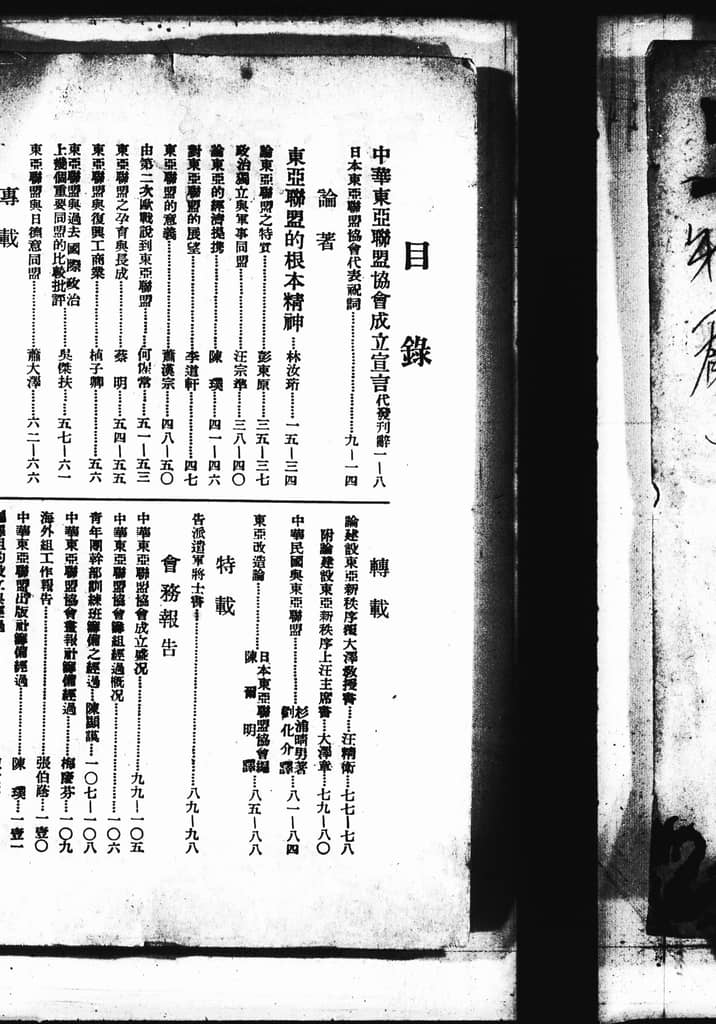 目錄
中華東亞聯盟協會成立宣言代發刊辭一—八
日本東亞聯盟協會代表祝詞…………九—一四
論著
東亞聯盟的根本精神……林汝珩……一五—三四
論東亞聯盟之特質…………彭東原……三五—三七
政治獨立與軍事同盟…………汪宗準……三八—四〇
論東亞的經濟提携…………陳璞……四一—四六
對東亞聯盟的展望…………李道軒……四七
東亞聯盟的意義…………蕭漢宗……四八—五〇
由第二次歐戰說到東亞聯盟……何惺常……五一—五三
東亞聯盟之孕育與長成…………蔡明……五四—五五
東亞聯盟與復興工商業…………楨子卿……五六
東亞聯盟與過去國際政治
上幾個重要同盟的比較批評……吳傑扶……五七—六一
東亞聯盟與日德意同盟…………蕭大澤……六二—六六
專載
轉載
論建設東亞新秩序覆大澤教授書……汪精衛……七七—七八
附論建設東亞新秩序上汪主席書……大澤章……七九—八〇
中華民國與東亞聯盟…………杉浦晴男著
劉化介譯……八一—八四
東亞改造論…………日本東亞聯盟協會編
陳爾明譯……八五—八八
特載
告派遣軍將士書…………八九—九八
會務報告
中華東亞聯盟協會成立盛況…………九九—一〇五
中華東亞聯盟協會籌組經過概況…………一〇六
青年團幹部訓練班籌備之經過…陳顯謨…一〇七—一〇八
中華東亞聯盟協會畫報社籌備經過……梅慶芬…一〇九
海外組工作報告…………張伯蔭…一壹〇
中華東亞聯盟出版社籌備經過…………陳璞…一壹一